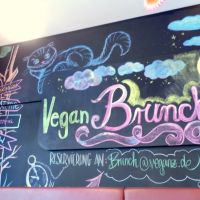 Vegan Brunch
RESERVIERUNG AN: Brunch@veganz.de